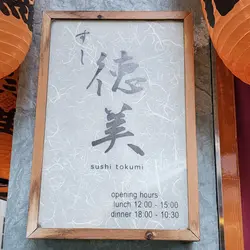 すし
徳美
sushi tokumi
opening hours
lunch 12:00 - 15:00
dinner 18:00 - 10:30